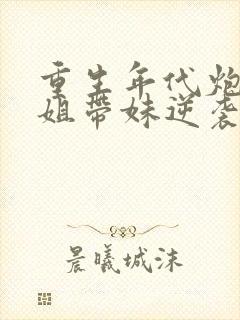 重生年代炮
姐带妹逆袭
晨曦城沫